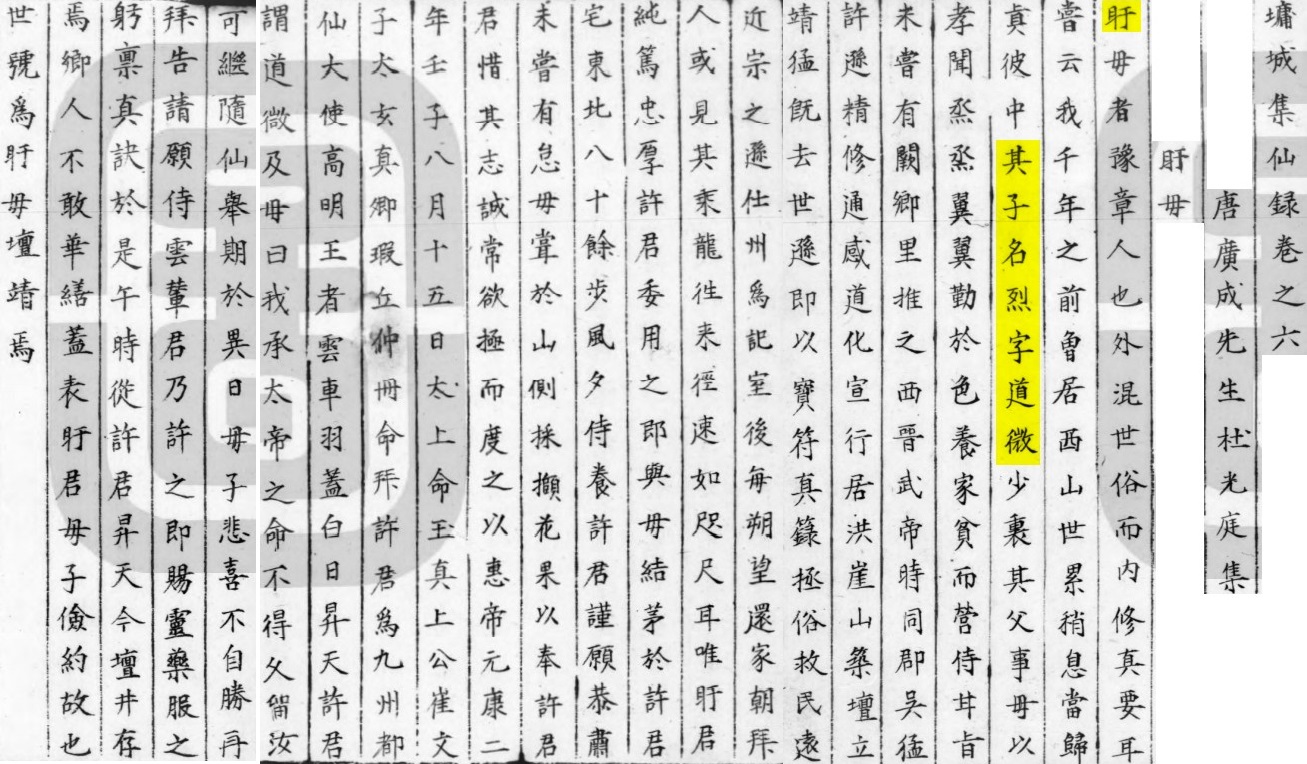 墉城集仙録卷之六
唐廣成先生杜光庭集
盱母
盱母者豫章人也外混世俗而内修真要耳
嘗云我千年之前曽居西山世累稍息當歸
真彼中其子名烈字道微少喪其父事母以
孝聞烝烝翼翼勤於色養家貧而營侍甘旨
未嘗有闕鄉里推之西晉武帝時同郡吳猛
許遜精修通感道化宣行居洪崖山築壇立
靖猛旣去世遜即以寳符真籙拯俗救民逺
近宗之遜仕州爲記室後每朔望還家朝拜
人或見其乘龍徃來徑速如咫尺耳唯盱君
純篤忠厚許君委用之即與母結茅於許君
宅東北八十餘步風夕侍養許君謹願恭肅
未嘗有怠母嘗於山側採擷花果以奉許君
君惜其志誠常欲極而度之以惠帝元康二
年壬子八月十五日太上命玉真上公崔文
子太玄真卿瑕丘仲冊命拜許君爲九州都
仙大使高明王者雲車羽蓋白日昇天許君
謂道微及母曰我承太帝之命不得乆留汝
可繼隨仙舉期於異日母子悲喜不自勝再
拜告請願侍雲輦君乃許之即賜靈藥服之
躬禀真訣於是午時從許君昇天今壇井存
焉鄉人不敢華繕蓋表盱君母子儉約故也
世號爲盱母壇靖焉